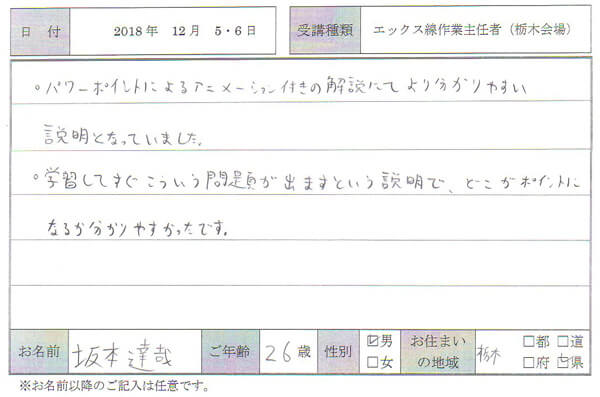 日 付 2018年 12月 5・6日 受講種類 エックス線作業主任者（栃木会場）
。パワーポイントによるアニメーション付きの解説にてより分かりやすい
説明となっていました。
。学習してすぐこういう問題が出ますという説明で、どこがポイントに
なるか分かりやすかったです。
お名前 坂本達哉 ご年齢 26歳 性別 ☑男 □女 お住まいの地域 栃木 □都 □道 □府 ☑県
※お名前以降のご記入は任意です。